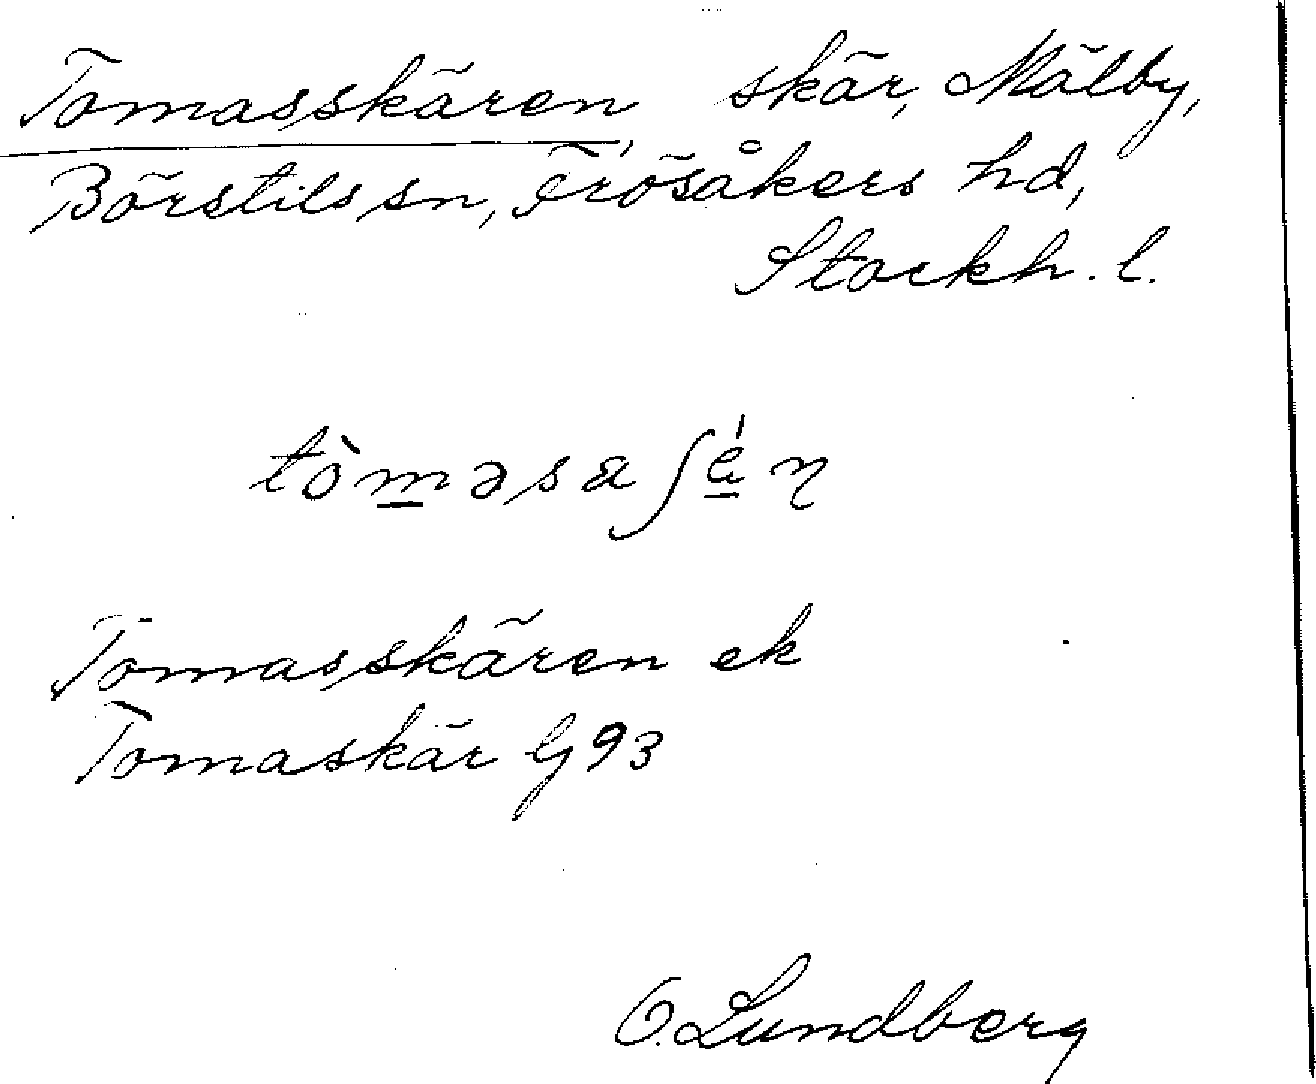 Tomasskären, skär, Mälby,
Börstils sn, Frösåkers hd,
Stockh. l.
Tomasskären ek
Tomaskär G93
O. Lundberg